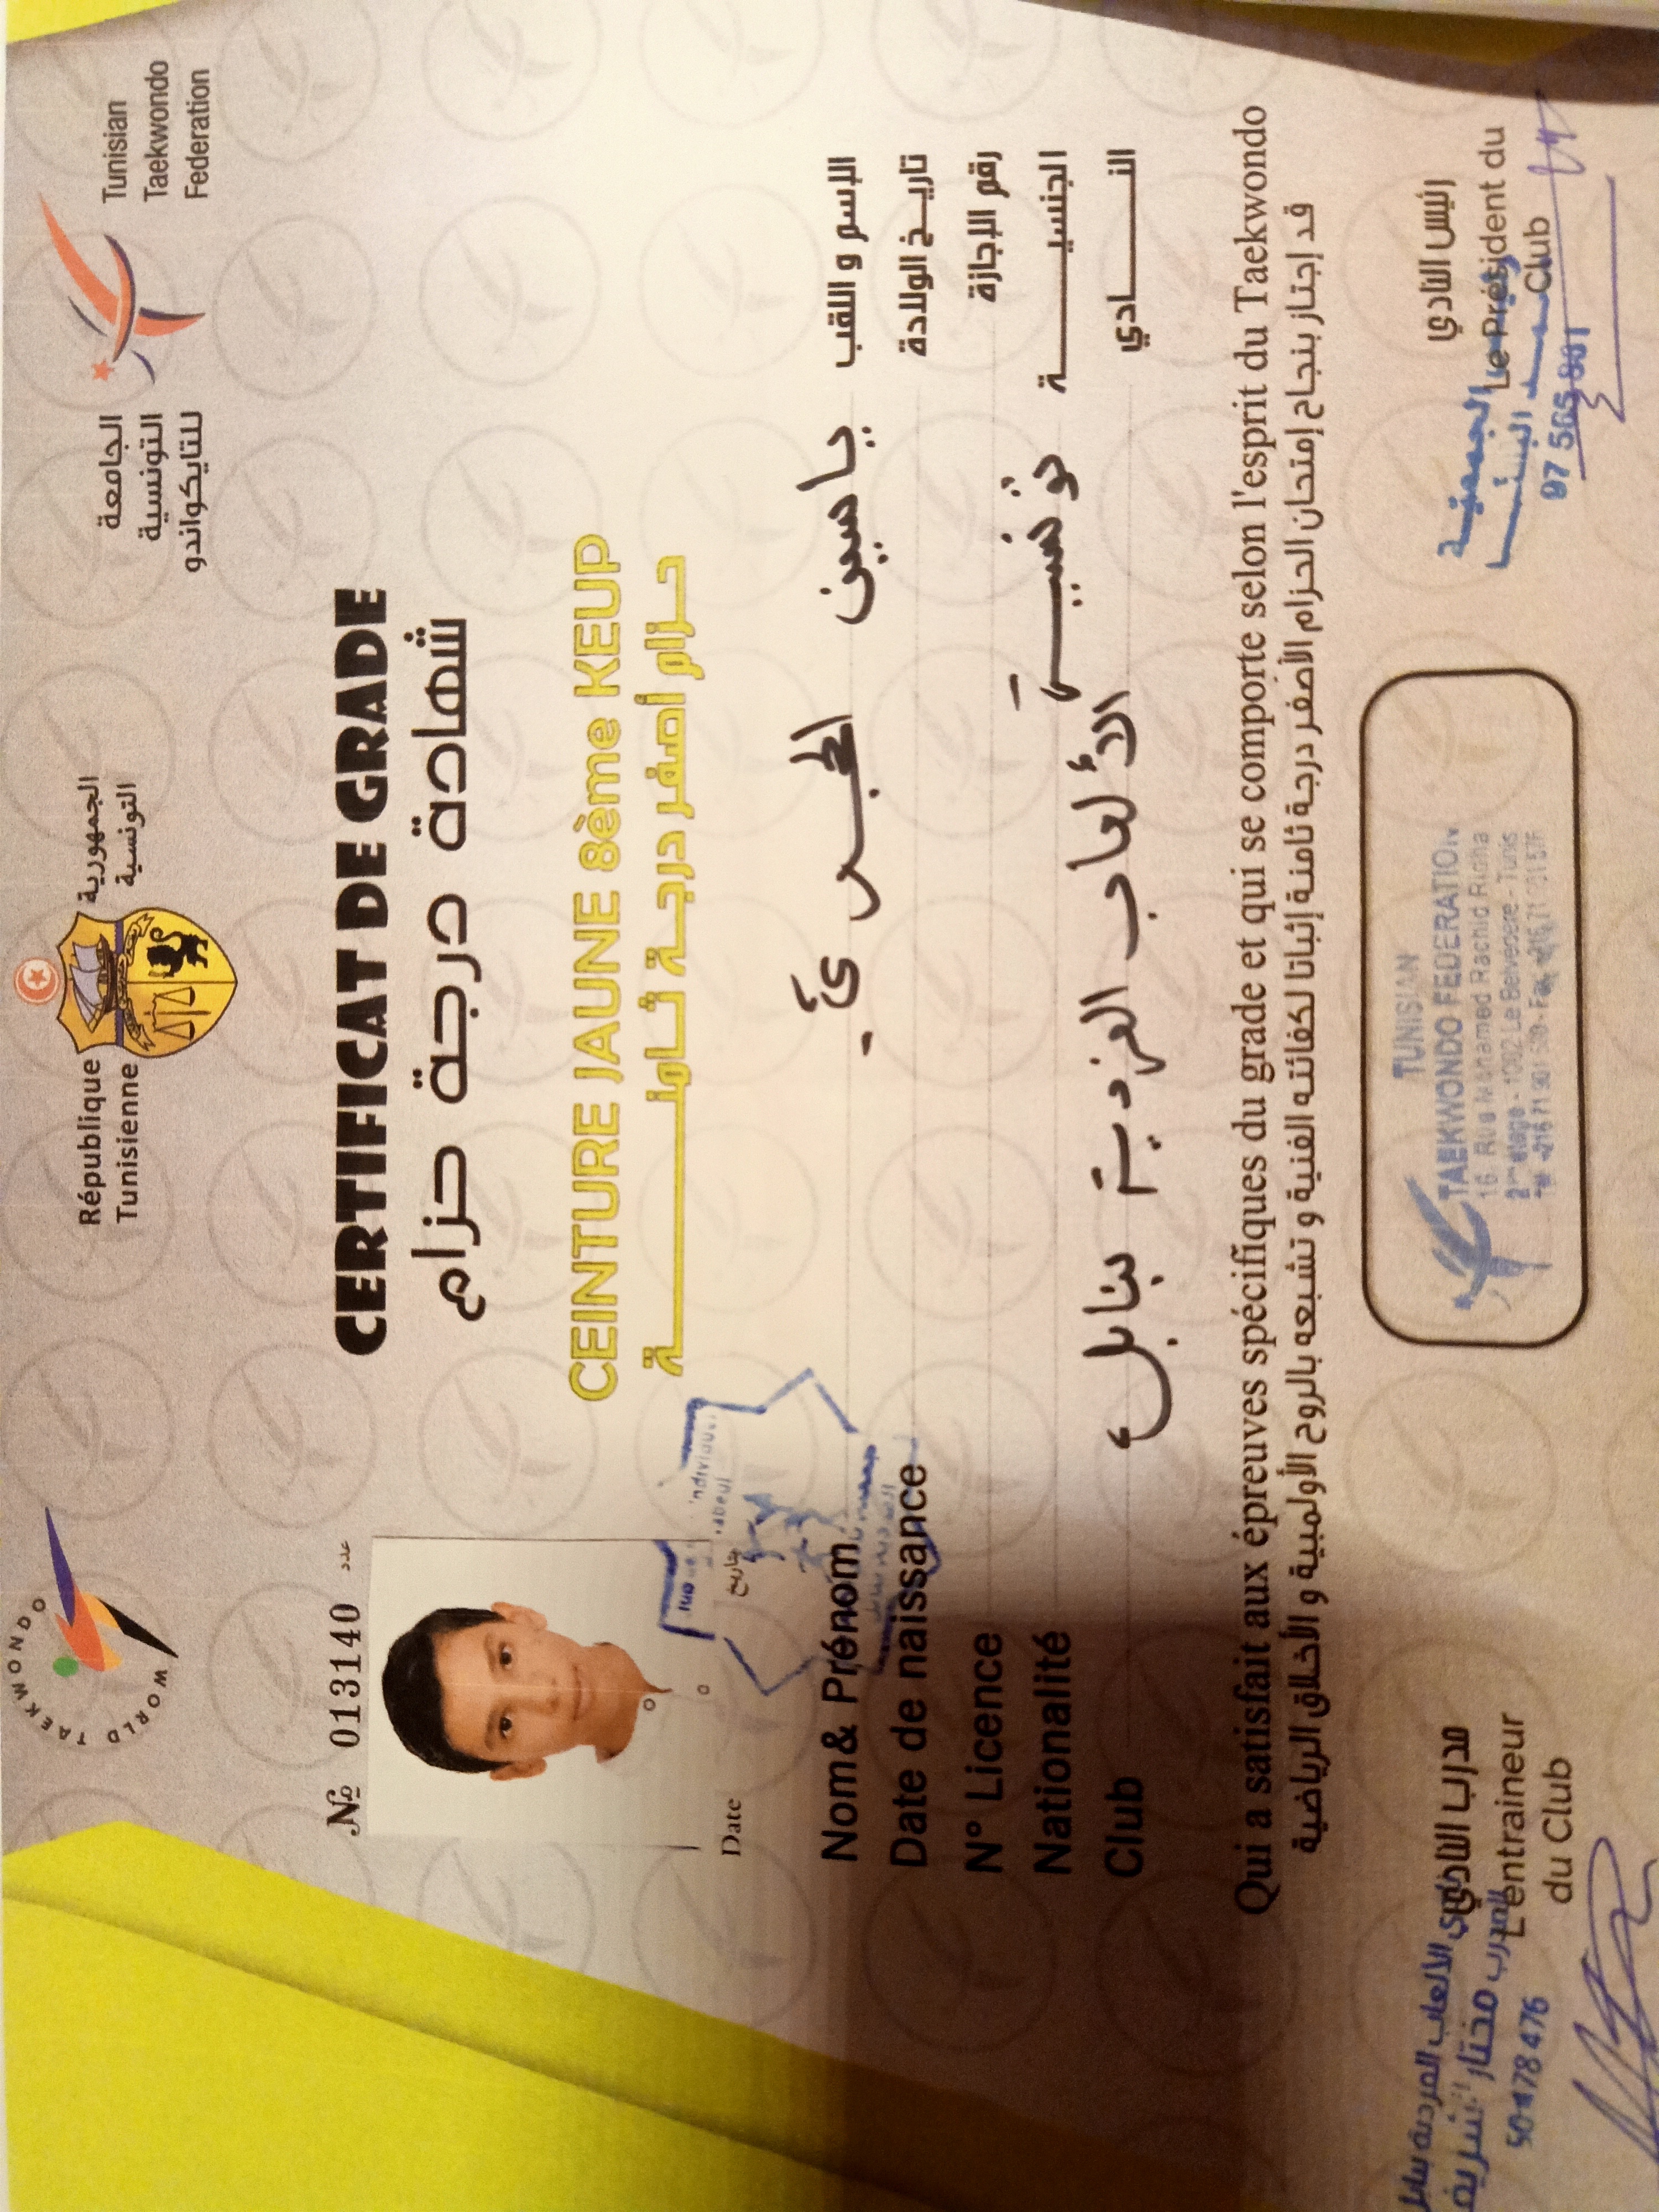 WORLD TAEKWONDO
République
Tunisienne
الجمهورية
التونسية
الجامعة
التونسية
للتايكواندو
Tunisian
Taekwondo
Federation
№ 013140 عدد
CERTIFICAT DE GRADE
شهادة درجة حزام
CEINTURE JAUNE 8ème KEUP
حزام أصفر درجة ثامنة
Date تاريخ
Nom& Prénom ياسين الإسم و اللقب
Date de naissance تاريخ الولادة
N° Licence رقم الإجازة
Nationalité تونسية الجنسية
Club الألعاب الفردية بنابل النادي
Qui a satisfait aux épreuves spécifiques du grade et qui se comporte selon l'esprit du Taekwondo
قد إجتاز بنجاح إمتحان الحزام الأصفر درجة ثامنة إثباتا لكفائته الفنية و تشبعه بالروح الأولمبية و الأخلاق الرياضية
مدرب النادي
L'entraineur
du Club
المدرب مختار الشريف
50 478 476
TUNISIAN
TAEKWONDO FEDERATION
16, Rue Mohamed Rachid Ridha
2ème étage - 1002 Le Belvédère - Tunis
رئيس النادي
Le Président du
Club
الجمعية
97 565 801